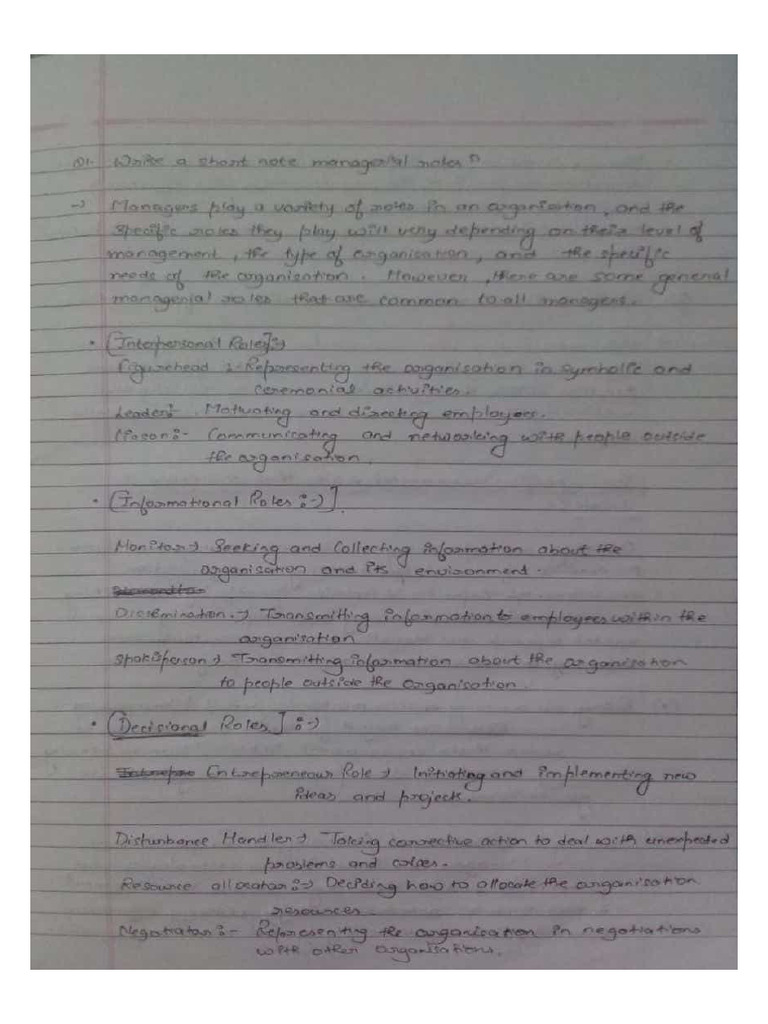 Q1. Write a short note managerial roles?
→ Managers play a variety of roles in an organisation, and the
specific roles they play will very depending on their level of
management, the type of organisation, and the specific
needs of the organisation. However, there are some general
managerial roles that are common to all managers.
• [Interpersonal Roles]:→
Figurehead :- Representing the organisation in symbolic and
ceremonial activities.
Leader:- Motivating and directing employees.
Liason:- Communicating and networking with people outside
the organisation.
• [Informational Roles :→].
Monitor → Seeking and Collecting information about the
organisation and its environment.
Dissemination. → Transmitting information to employees within the
organisation
Spokesperson → Transmitting information about the organisation
to people outside the organisation.
• [Decisional Roles] :→
Entrepreneour Role → Initiating and implementing new
ideas and project.
Disturbance Handler → Taking corrective action to deal with unexpected
problems and
Resource allocator:→ Deciding how to allocate the organisation
resources
Negotiator:- Representing the organisation in negotiations
with other organisations.